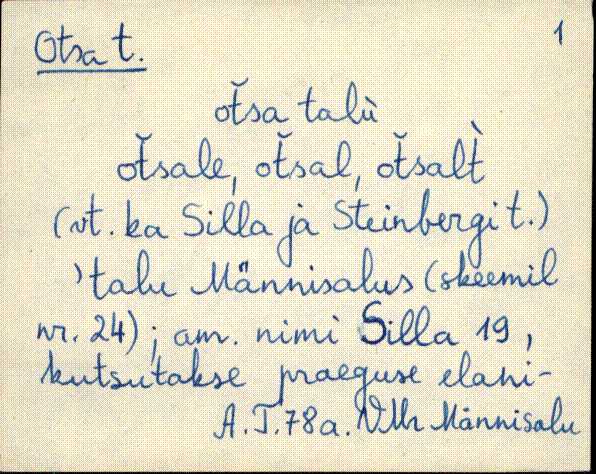 Otsa t.
1
ot̆sa talù
ot̆sale, ot̆sal, ot̆salt̀
(vt. ka Silla ja Steinbergi t.)
'talu Männisalus (skeemil
nr. 24); am. nimi Silla 19,
kutsutakse praeguse elani-
A.T.78a. VMr Männisalu